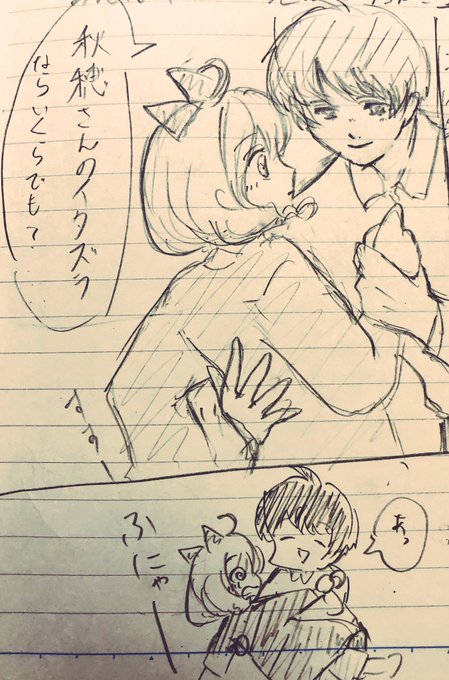 秋穂さんのイタズラ
ならいくらでも？
あっ
ふにゃ